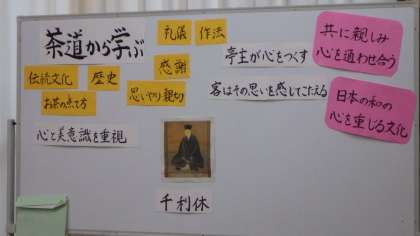 茶道から学ぶ
礼儀
作法
感謝
伝統文化
歴史
お茶の点て方
思いやり親切
心と美意識を重視
亭主が心をつくす
客はその思いを感じてこたえる
共に親しみ
心を通わせ合う
日本の和の
心を重じる文化
千利休